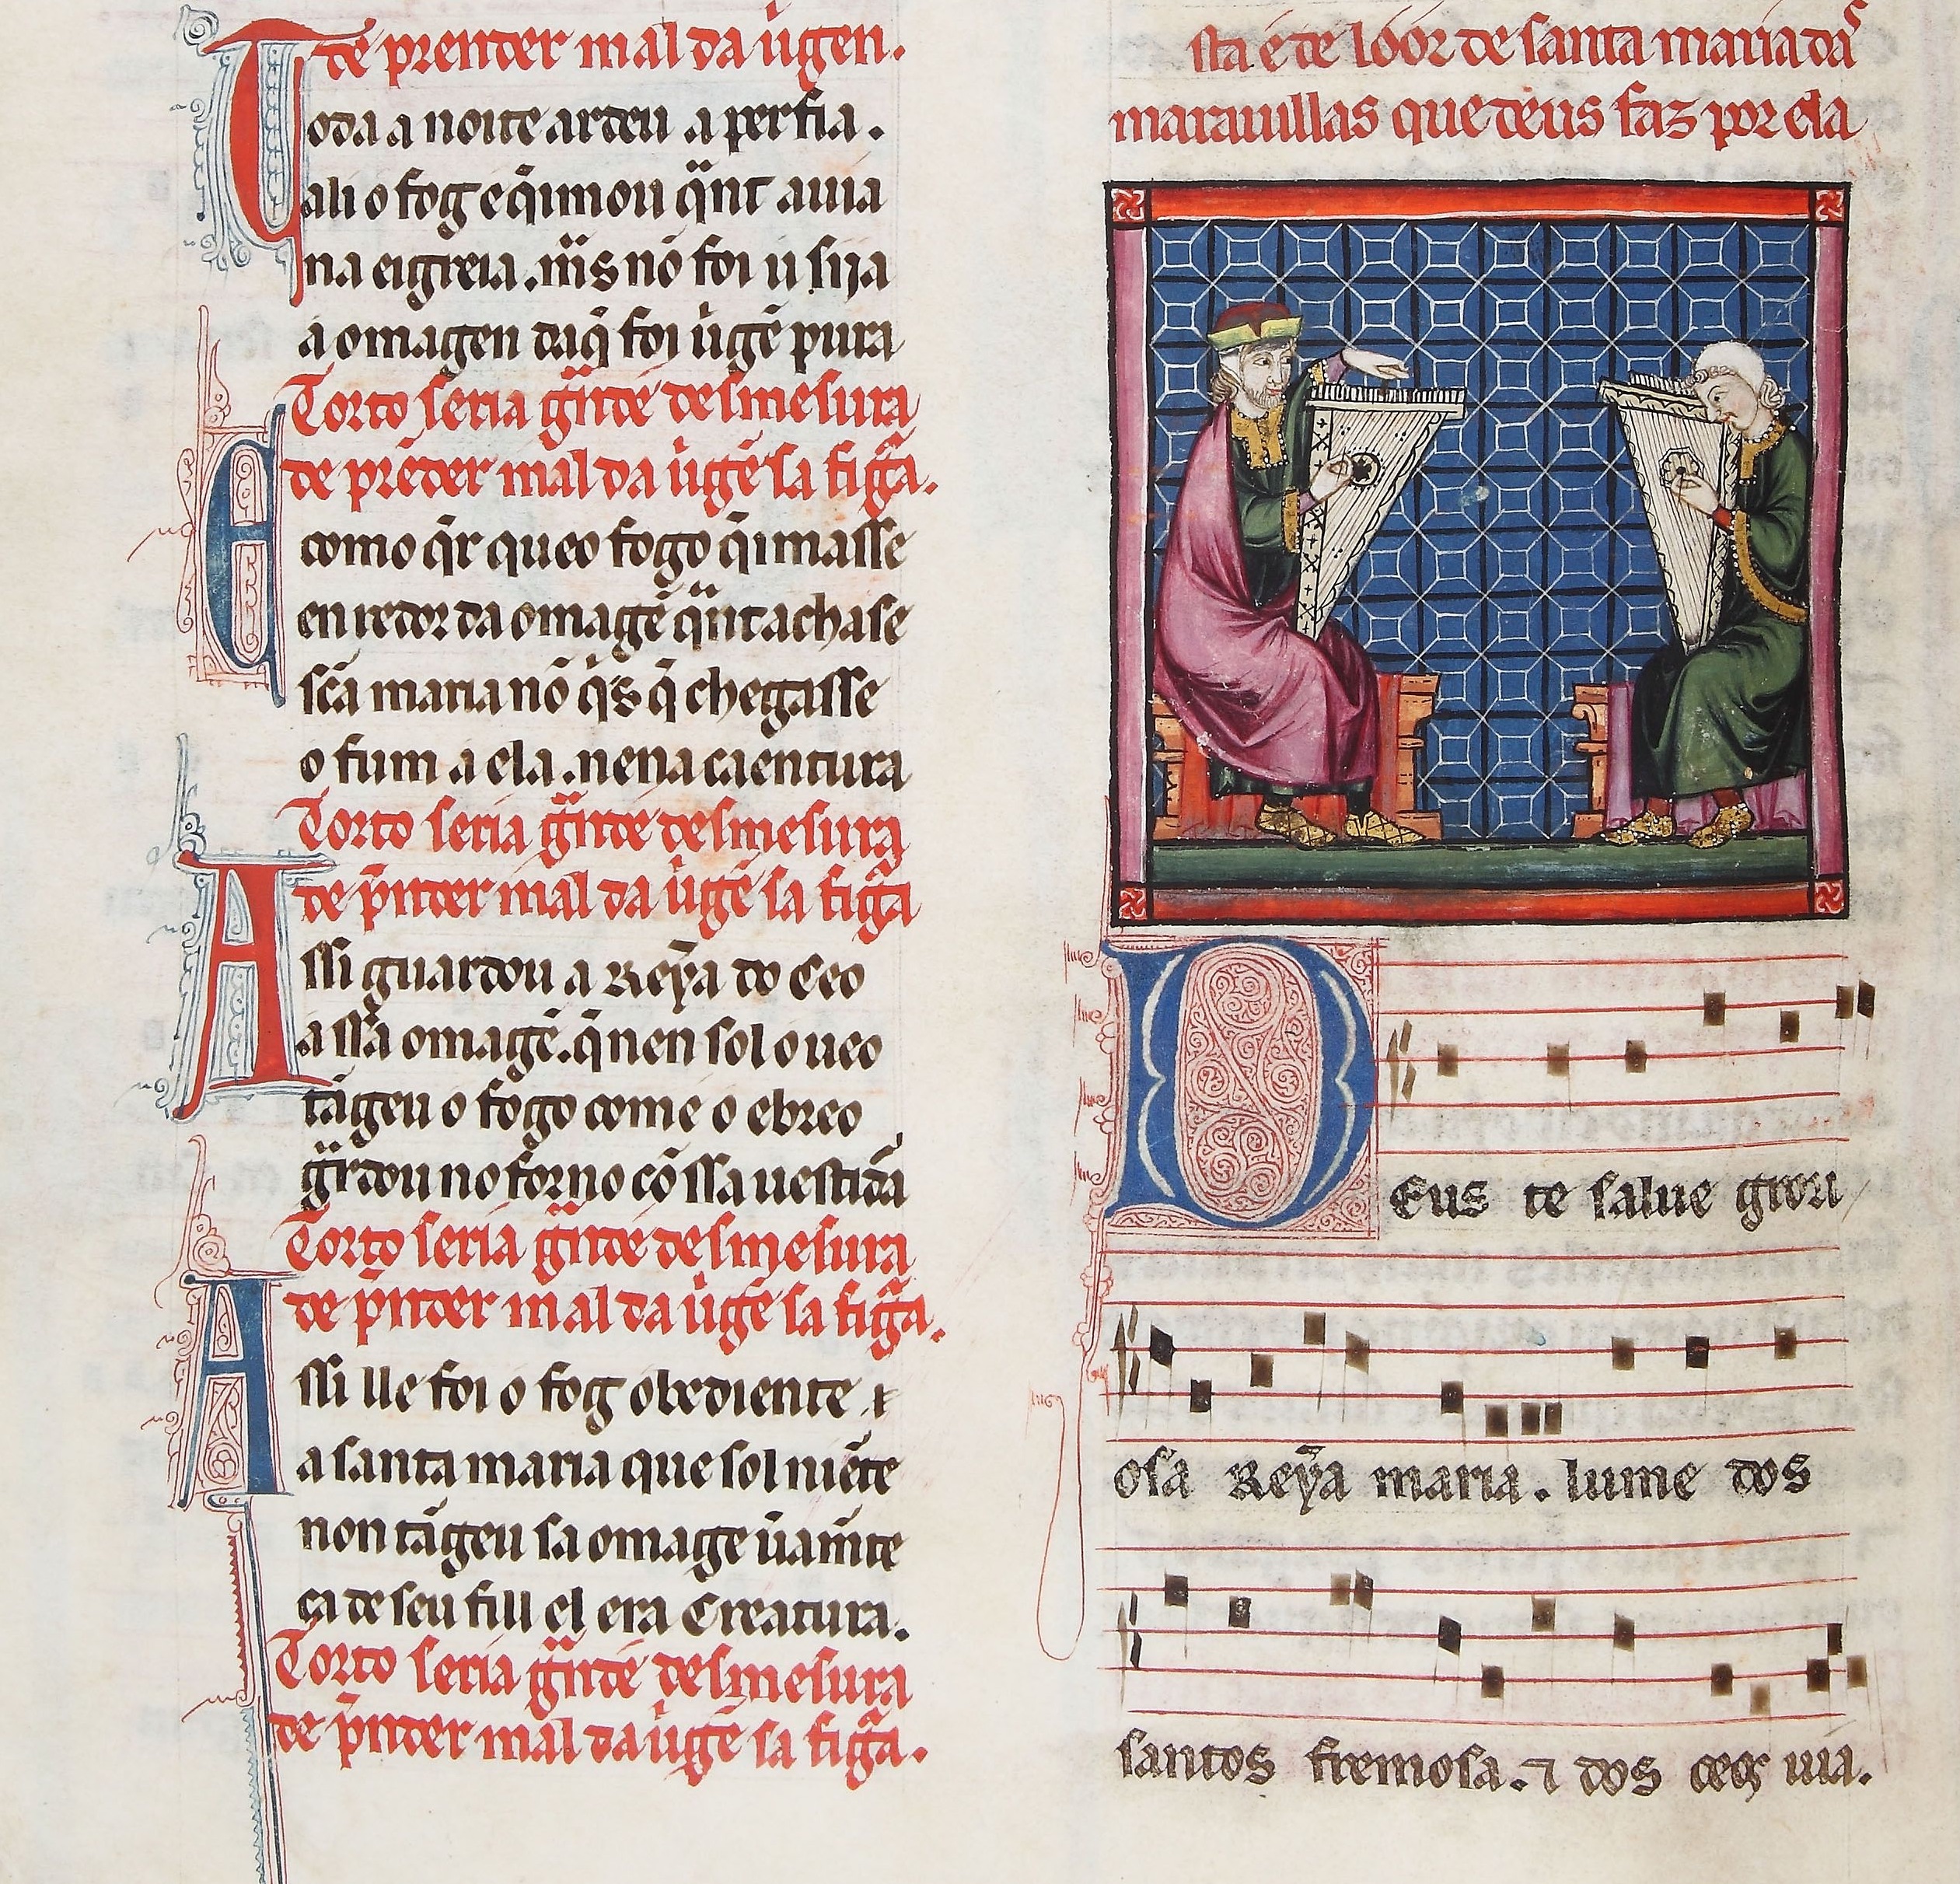 de prender mal da uĩgen.
Toda a noite ardeu a perfia.
ali o fog e q̃imou q̃nt auia
na eigreia. m̃s nõ foi u siia
a omagen daq̃ foi uĩgẽ pura
Torto seria g̃nde desmesura
de prẽder mal da uĩgẽ sa fig̃a.
E como q̃r que o fogo q̃imasse
en redor da omagẽ q̃nt achasse
sc̃a maria nõ q̃s q̃ chegasse
o fum a ela. nen a caentura
Torto seria g̃nde desmesura
de p̃nder mal da uĩgẽ sa fig̃a
Assi guardou a Reỹa do Ceo
a ssa omagẽ. q̃ nen sol o ueo
tãgeu o fogo come o ebreo
g̃rdou no forno cõ ssa uestid̃a
Torto seria g̃nde desmesura
de p̃nder mal da uĩgẽ sa fig̃a.
Assi lle foi o fog obediente
a santa maria que sol niẽte
non tãgeu sa omage ũam̃te
ca de seu fill el era Creatura.
Torto seria g̃nde desmesura
de p̃nder mal da uĩgẽ sa fig̃a.
sta é de loor de santa maria das
marauillas que deus faz por ela
DEus te salue grori
osa Reỹa maria. lume dos
santos fremosa. ⁊ dos ceos uia.